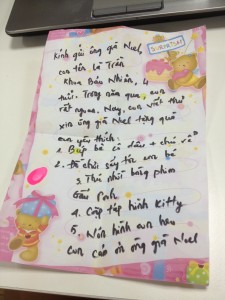 Kính gửi ông già Noel
con tên là Trần
Khoa Bảo Nhiên, 4
tuổi. Trong năm qua, con
rất ngoan. Nay, con viết thư
xin ông già Noel tặng quà
con yêu thích:
1. Búp bê cô dâu + chú rể
2. Đồ chơi sấy tóc em bé
3. Thú nhồi bông phim
Gấu Pooh
4. Cặp táp hình Kitty
5. Nón hình con heo
Con cảm ơn ông già Noel